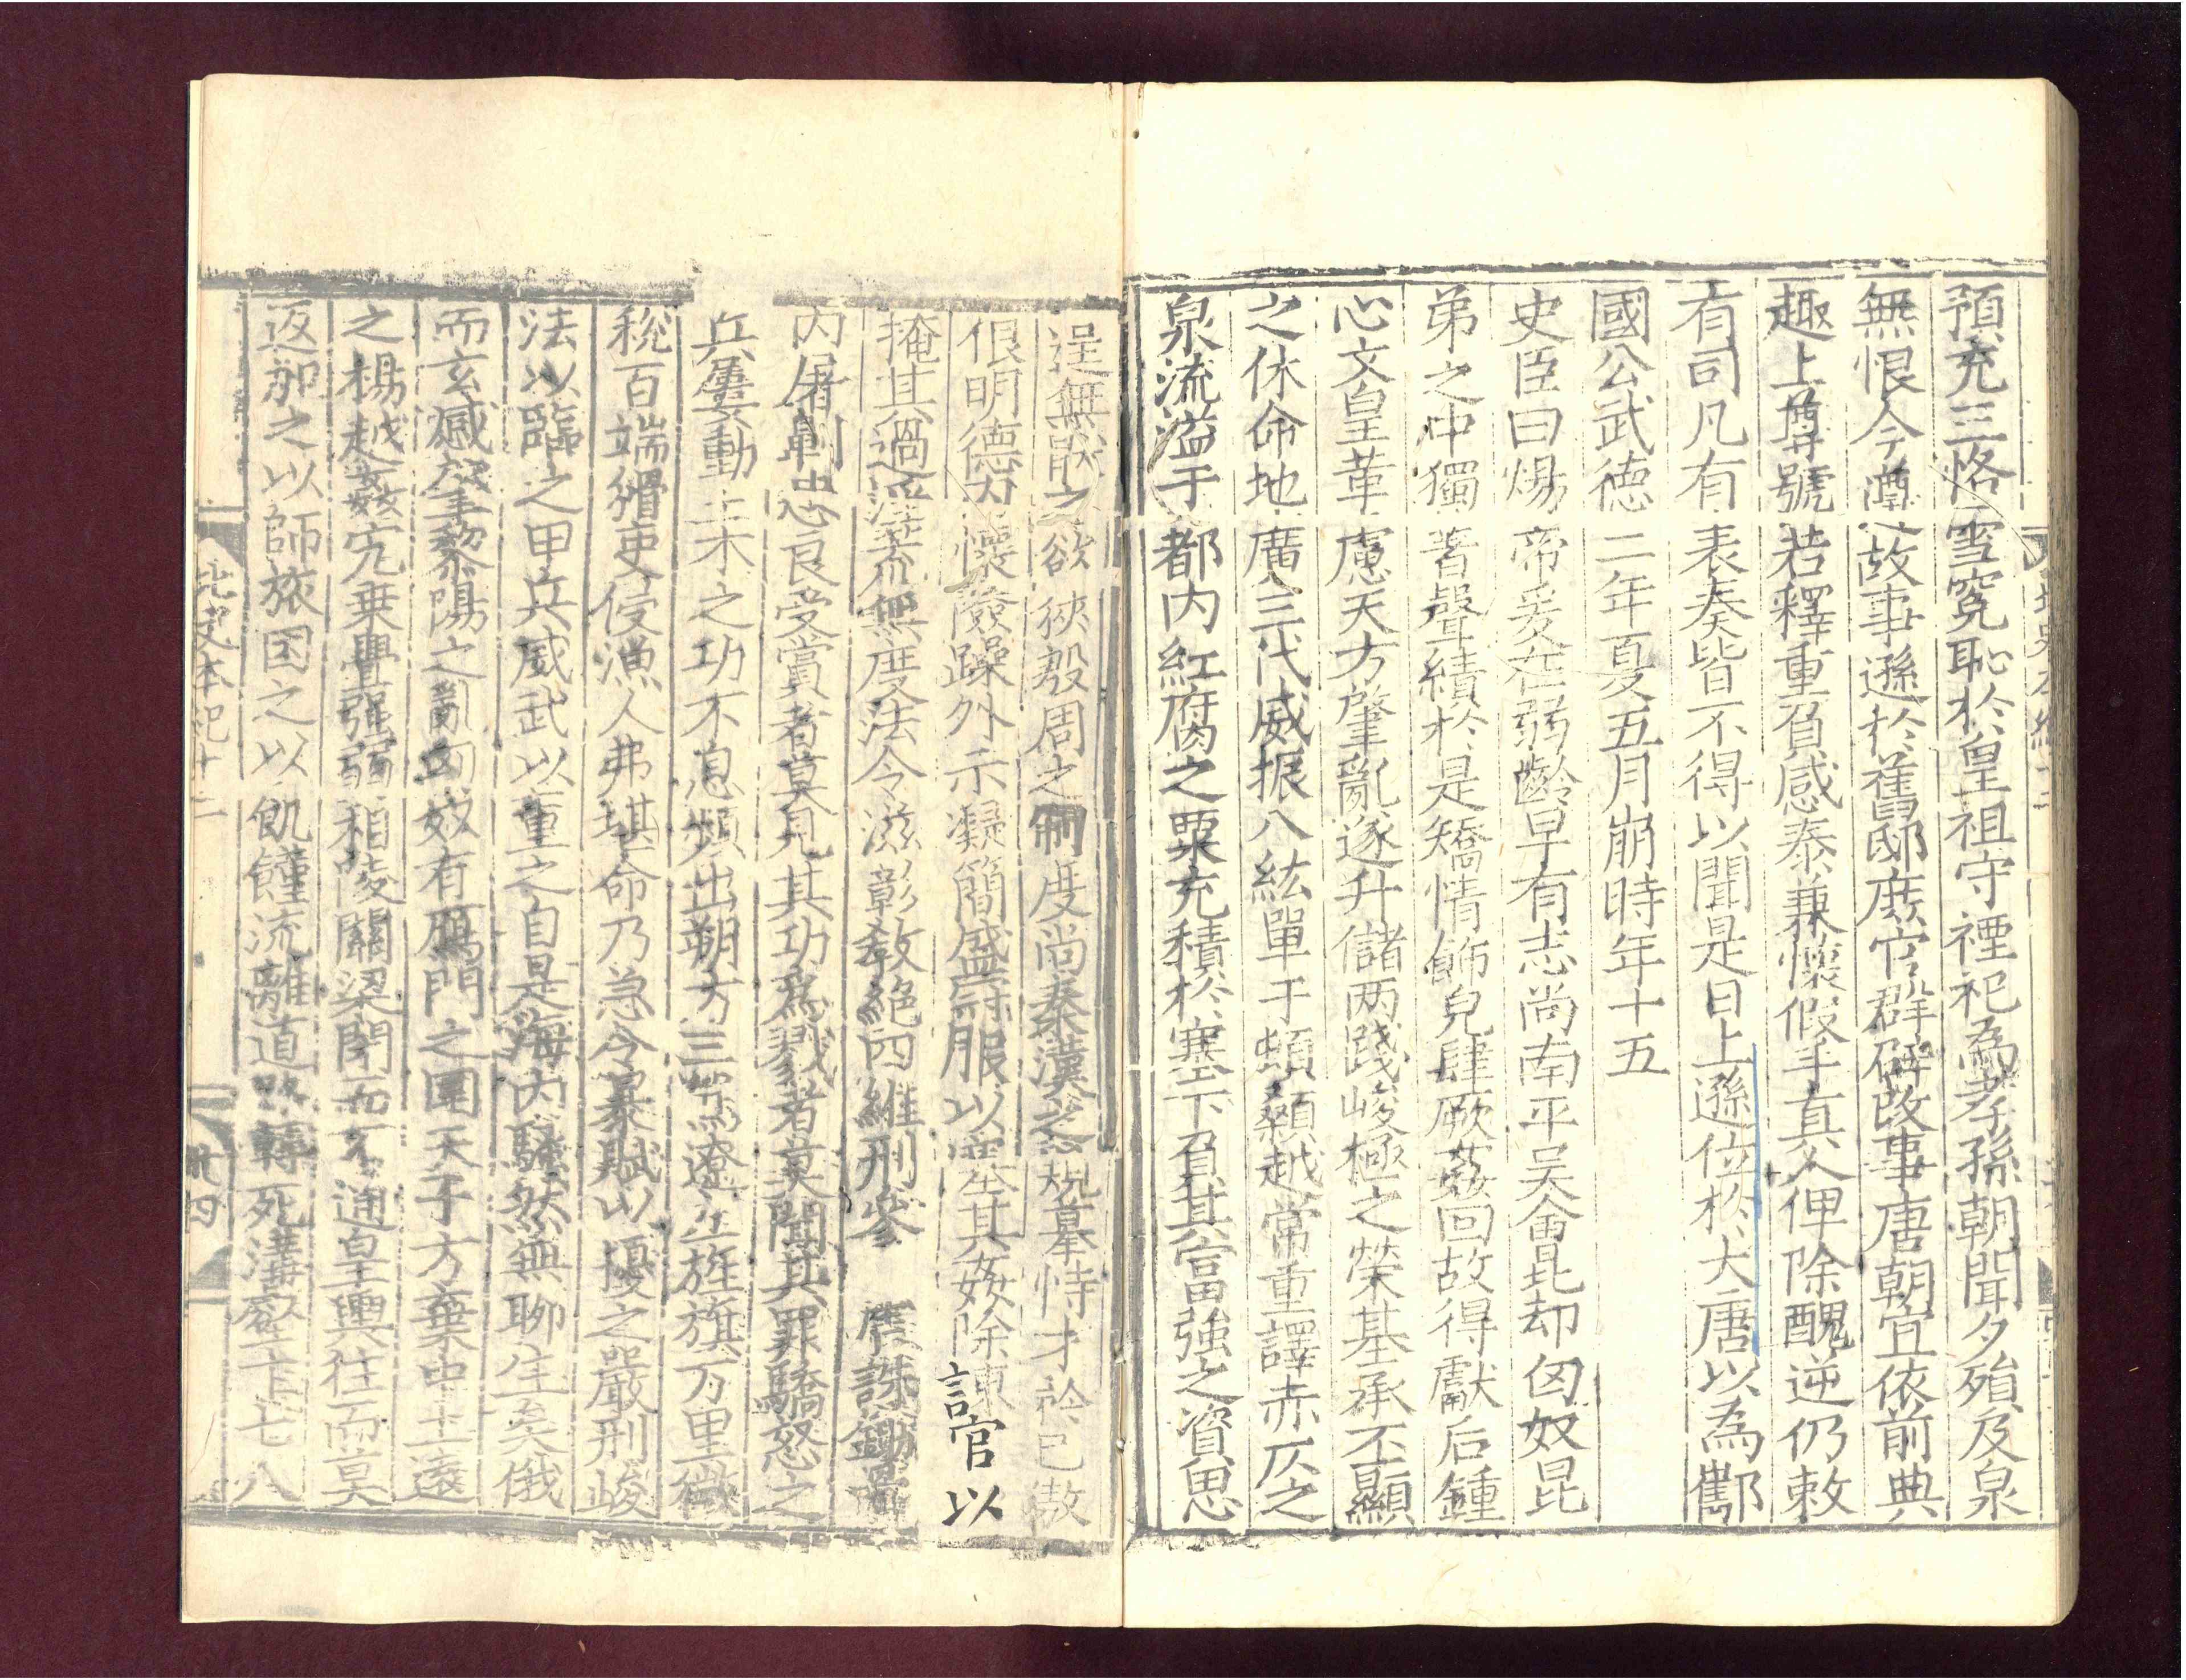 預充三恪雪寃恥於皇祖守禋祀為孝孫朝聞夕殞及泉
無恨今遵故事遜於舊邸庶官群辟改事唐朝宜依前典
趣上尊號若釋重負感泰兼懷假手真人俾除醜逆仍敕
有司凡有表奏皆不得以聞是日上遜位於大唐以為酅
國公武德二年夏五月崩時年十五
史臣曰煬帝爰在弱齡早有志尚南平吳會北却匈奴昆
弟之中獨著聲績於是矯情飾皃肆厥姦回故得獻后鍾
心文皇革慮天方肇亂遂升儲两踐峻極之榮基承丕顯
之休命地廣三代威振八紘單于頓顙越常重譯赤仄之
泉流溢于都内紅腐之粟充積於塞下負其富強之資思
逞無猒之欲狹殷周之制度尚秦漢之規摹恃才矜己傲
佷明德内懷險躁外示凝簡盛冠服以塞其姦除諫官以
掩其過淫荒無度法令滋彰教絶四維刑參 虐誅鋤骨
内屠勦忠良受賞者莫見其功為戮者莫聞其罪驕怒之
兵屢動土木之功不息頻出朔方三駕遼左旌旗万里徵
稅百端猾吏侵漁人弗堪命乃急令暴賦以擾之嚴刑峻
法以臨之甲兵威武以董之自是海内騷然無聊生矣俄
而玄感肇黎陽之亂匈奴有鴈門之圍天子方棄中土遠
之楊越姦宄乗舋強弱相陵關梁閉而不通皇輿往而莫
返加之以師旅因之以飢饉流離道路轉死溝壑十七八
北史本紀十二
卅四